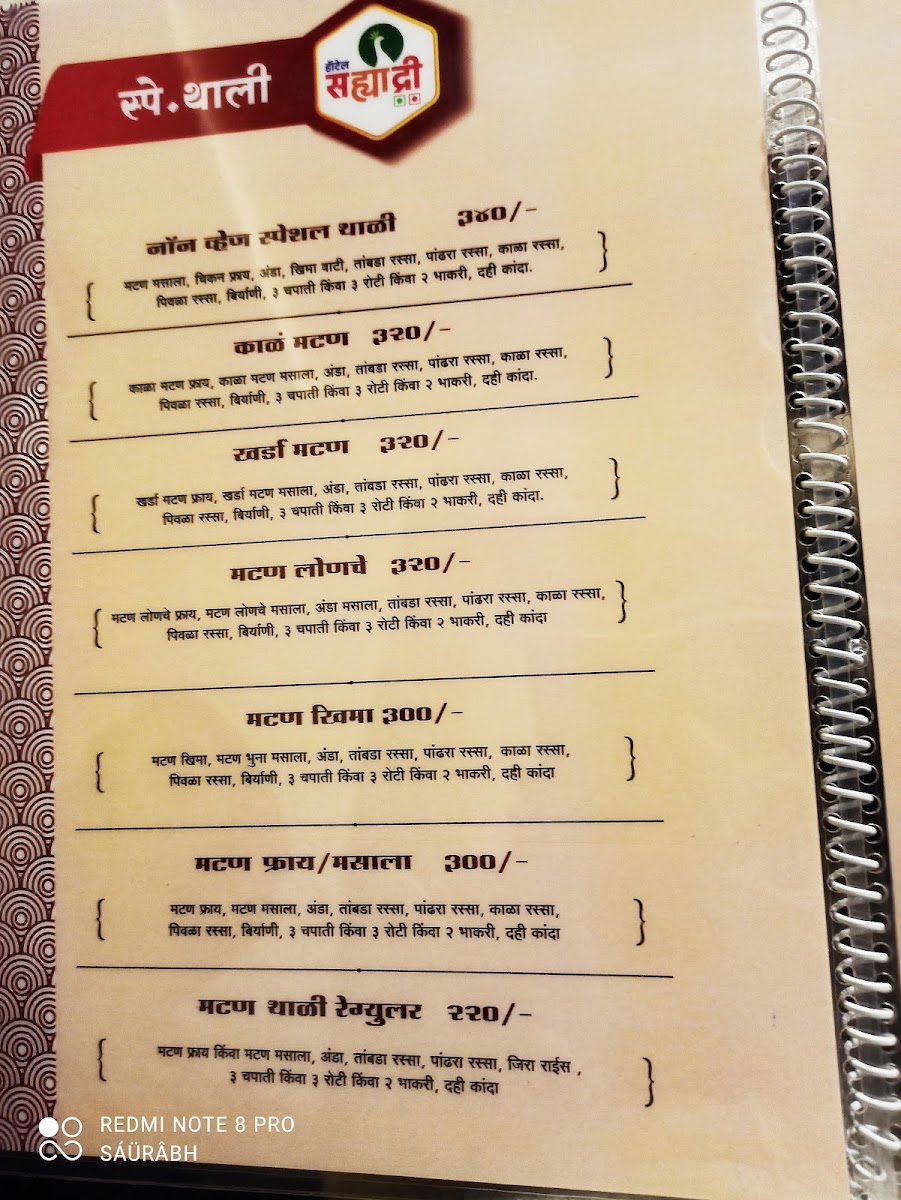 स्पे. थाली
हॉटेल
सह्याद्री
नॉन व्हेज स्पेशल थाळी ३४०/-
{ मटण मसाला, चिकन फ्राय, अंडा, खिमा वाटी, तांबडा रस्सा, पांढरा रस्सा, काळा रस्सा, }
पिवळा रस्सा, बिर्याणी, ३ चपाती किंवा ३ रोटी किंवा २ भाकरी, दही कांदा.
काळं मटण ३२०/-
{ काळा मटण फ्राय, काळा मटण मसाला, अंडा, तांबडा रस्सा, पांढरा रस्सा, काळा रस्सा, }
पिवळा रस्सा, बिर्याणी, ३ चपाती किंवा ३ रोटी किंवा २ भाकरी, दही कांदा.
खर्डा मटण ३२०/-
{ खर्डा मटण फ्राय, खर्डा मटण मसाला, अंडा, तांबडा रस्सा, पांढरा रस्सा, काळा रस्सा, }
पिवळा रस्सा, बिर्याणी, ३ चपाती किंवा ३ रोटी किंवा २ भाकरी, दही कांदा.
मटण लोणचे ३२०/-
{ मटण लोणचे फ्राय, मटण लोणचे मसाला, अंडा मसाला, तांबडा रस्सा, पांढरा रस्सा, काळा रस्सा, }
पिवळा रस्सा, बिर्याणी, ३ चपाती किंवा ३ रोटी किंवा २ भाकरी, दही कांदा
मटण खिमा ३००/-
{ मटण खिमा, मटण भुना मसाला, अंडा, तांबडा रस्सा, पांढरा रस्सा, काळा रस्सा, }
पिवळा रस्सा, बिर्याणी, ३ चपाती किंवा ३ रोटी किंवा २ भाकरी, दही कांदा
मटण फ्राय/मसाला ३००/-
{ मटण फ्राय, मटण मसाला, अंडा, तांबडा रस्सा, पांढरा रस्सा, काळा रस्सा, }
पिवळा रस्सा, बिर्याणी, ३ चपाती किंवा ३ रोटी किंवा २ भाकरी, दही कांदा
मटण थाळी रेग्युलर २२०/-
{ मटण फ्राय किंवा मटण मसाला, अंडा, तांबडा रस्सा, पांढरा रस्सा, जिरा राईस , }
३ चपाती किंवा ३ रोटी किंवा २ भाकरी, दही कांदा
REDMI NOTE 8 PRO
SÁÜRÂBH